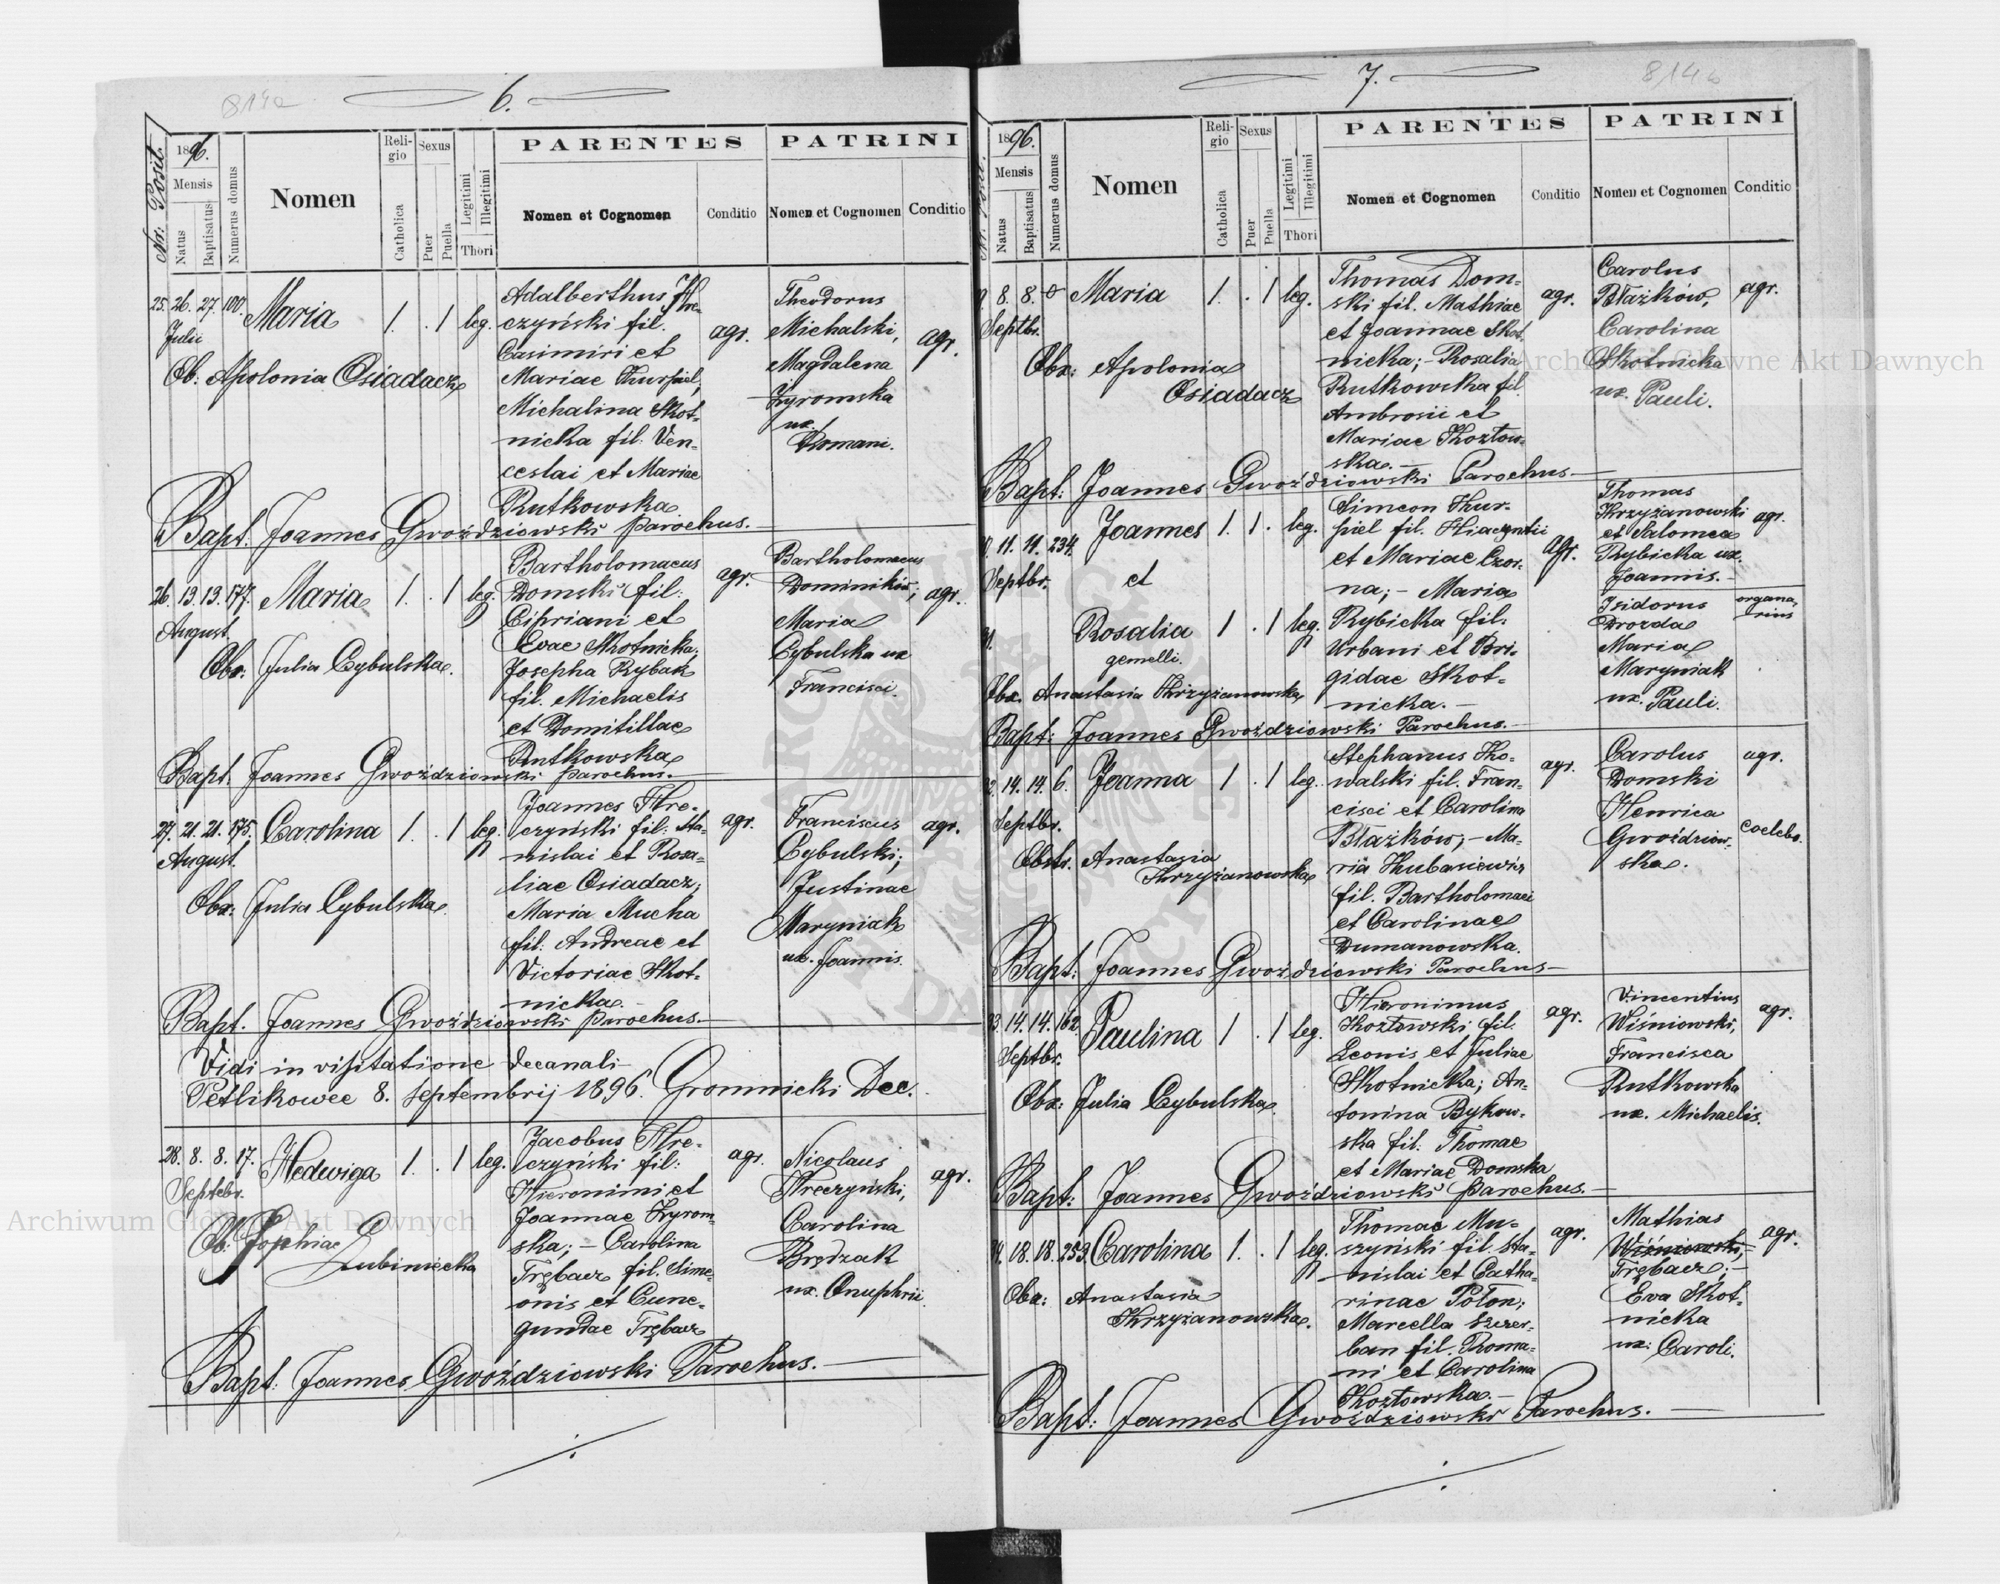 814a
6.
Nr. Posit.
1896.
Mensis
Natus
Baptisatus
Numerus domus
Nomen
Religio
Catholica
Sexus
Puer
Puella
Legitimi
Illegitimi
Thori
PARENTES
Nomen et Cognomen
Conditio
PATRINI
Nomen et Cognomen
Conditio
25. 26. 27. 100. Maria 1. . 1 leg.
Julii
Ob. Apolonia Osiadacz
Adalberthus Hre-
czyński fil.
Casimiri et
Mariae Kurpiel,
Michalina Skot-
nicka fil. Ven-
ceslai et Mariae
Rutkowska
agr.
Theodorus
Michalski,
Magdalena
Żyromska
ux.
Romani.
agr.
Bapt. Joannes Gwoździowski parochus.
26. 13. 13. 177. Maria 1. . 1 leg.
August.
Obx: Julia Cybulska.
Bartholomaeus
Domski fil:
Cipriani et
Evae Skotnicka,
Josepha Rybak
fil. Michaelis
et Domitillae
Rutkowska
agr.
Bartholomaeus
Maria
Cybulska ux
Francisci.
agr.
Bapt. Joannes Gwoździowski parochus.
27. 21. 21. 175. Carolina 1. . 1 leg.
August.
Obx: Julia Cybulska.
Joannes Hre-
czyński fil: Sta-
nislai et Rosa-
liae Osiadacz;
Maria Mucha
fil: Andreae et
Victoriae Skot-
nicka.
agr.
Franciscus
Cybulski;
Justinae
Maryniak
ux. Joannis.
agr.
Bapt. Joannes Gwoździowski parochus.
Vidi in visitatione decanali
Petlikowce 8. septembrij 1896. Gromnicki Dec.
28. 8. 8. 17. Hedwiga 1. . 1 leg.
Septebr.
Ob: Sophiae
Lubiniecka
Jacobus Hre-
czyński fil:
Hieronimi et
Joannae Żyrom-
ska; - Carolina
Trębacz fil. Sime-
onis et Cune-
gundae Trębacz
agr.
Nicolaus
Hreczyński,
Carolina
Brędzak
ux. Onuphrii.
agr.
Bapt: Joannes Gwoździowski Parochus.
814b
7.
1896.
Mensis
Natus
Baptisatus
Numerus domus
Nomen
Religio
Catholica
Sexus
Puer
Puella
Legitimi
Illegitimi
Thori
PARENTES
Nomen et Cognomen
Conditio
PATRINI
Nomen et Cognomen
Conditio
8. 8. Maria 1. . 1 leg.
Septbr.
Obx: Apolonia
Osiadacz
Thomas Dom-
ski fil. Mathiae
et Joannae Skot-
nicka; - Rosalia
Rutkowska fil.
Ambrosii et
Mariae Kozłow-
ska. -
agr.
Carolus
Błażków,
Carolina
Skotnicka
ux. Pauli.
agr.
Bapt: Joannes Gwoździowski Parochus.
11. 11. 234. Joannes 1. 1. . leg.
Septbr. et
31. Rosalia 1 . 1 leg.
gemelli.
Obx. Anastasia Krzyżanowska
Simeon Kur-
piel fil. Hiacyntii
et Mariae Czor-
na; - Maria
Rybicka fil.
Urbani et Bri-
gidae Skot-
nicka. -
agr.
Thomas
Krzyżanowski
et Salomea
Rybicka ux.
Joannis. -
agr.
Isidorus
Drozda
Maria
Maryniak
ux. Pauli.
organa-
rius
Bapt: Joannes Gwoździowski Parochus.
32. 14. 14. 6. Joanna 1 . 1 leg.
Septbr.
Obstr. Anastasia
Krzyżanowska
Stephanus Ko-
walski fil. Fran-
cisci et Carolina
Błażków; - Ma-
ria Kubasiewicz
fil. Bartholomaei
et Carolinae
Dumanowska.
agr.
Carolus
Domski
Henrica
Gwoździow-
ska.
agr.
coelebs.
Bapt: Joannes Gwoździowski Parochus
33. 14. 14. 162. Paulina 1 . 1 leg.
Septbr.
Obx: Julia Cybulska.
Hieronimus
Kozłowski fil.
Leonis et Juliae
Skotnicka; An-
tonina Bykow-
ska fil: Thomae
et Mariae Domska
agr.
Vincentius
Wiśniowski,
Francisca
Rutkowska
ux. Michaelis.
agr.
Bapt: Joannes Gwoździowski parochus.
34. 18. 18. 253. Carolina 1. . 1 leg.
Obx: Anastasia
Krzyżanowska.
Thomae Mu-
szyński fil. Sta-
nislai et Catha-
rinae Poton;
Marcella Szczer-
ban fil. Roma-
ni et Carolina
Kozłowska. -
agr.
Mathias
Wiśniowski,
Trębacz; -
Eva Skot-
nicka
ux: Caroli.
agr.
Bapt: Joannes Gwoździowski Parochus.
Archiwum Główne Akt Dawnych
Archiwum Główne Akt Dawnych